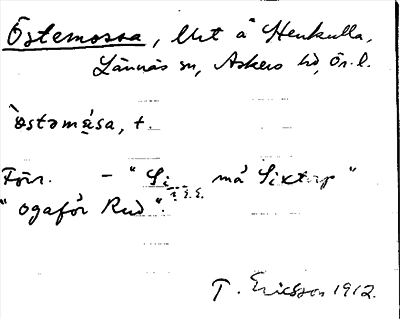 Östemossa, Urt å Henkulla,
Lännäs sn, Askers hd, Ör. l.
`östəmǻsa, t.
Förr. – "Si må Sixtorp"
"ogafö́r Rud".
T. Ericsson 1912.